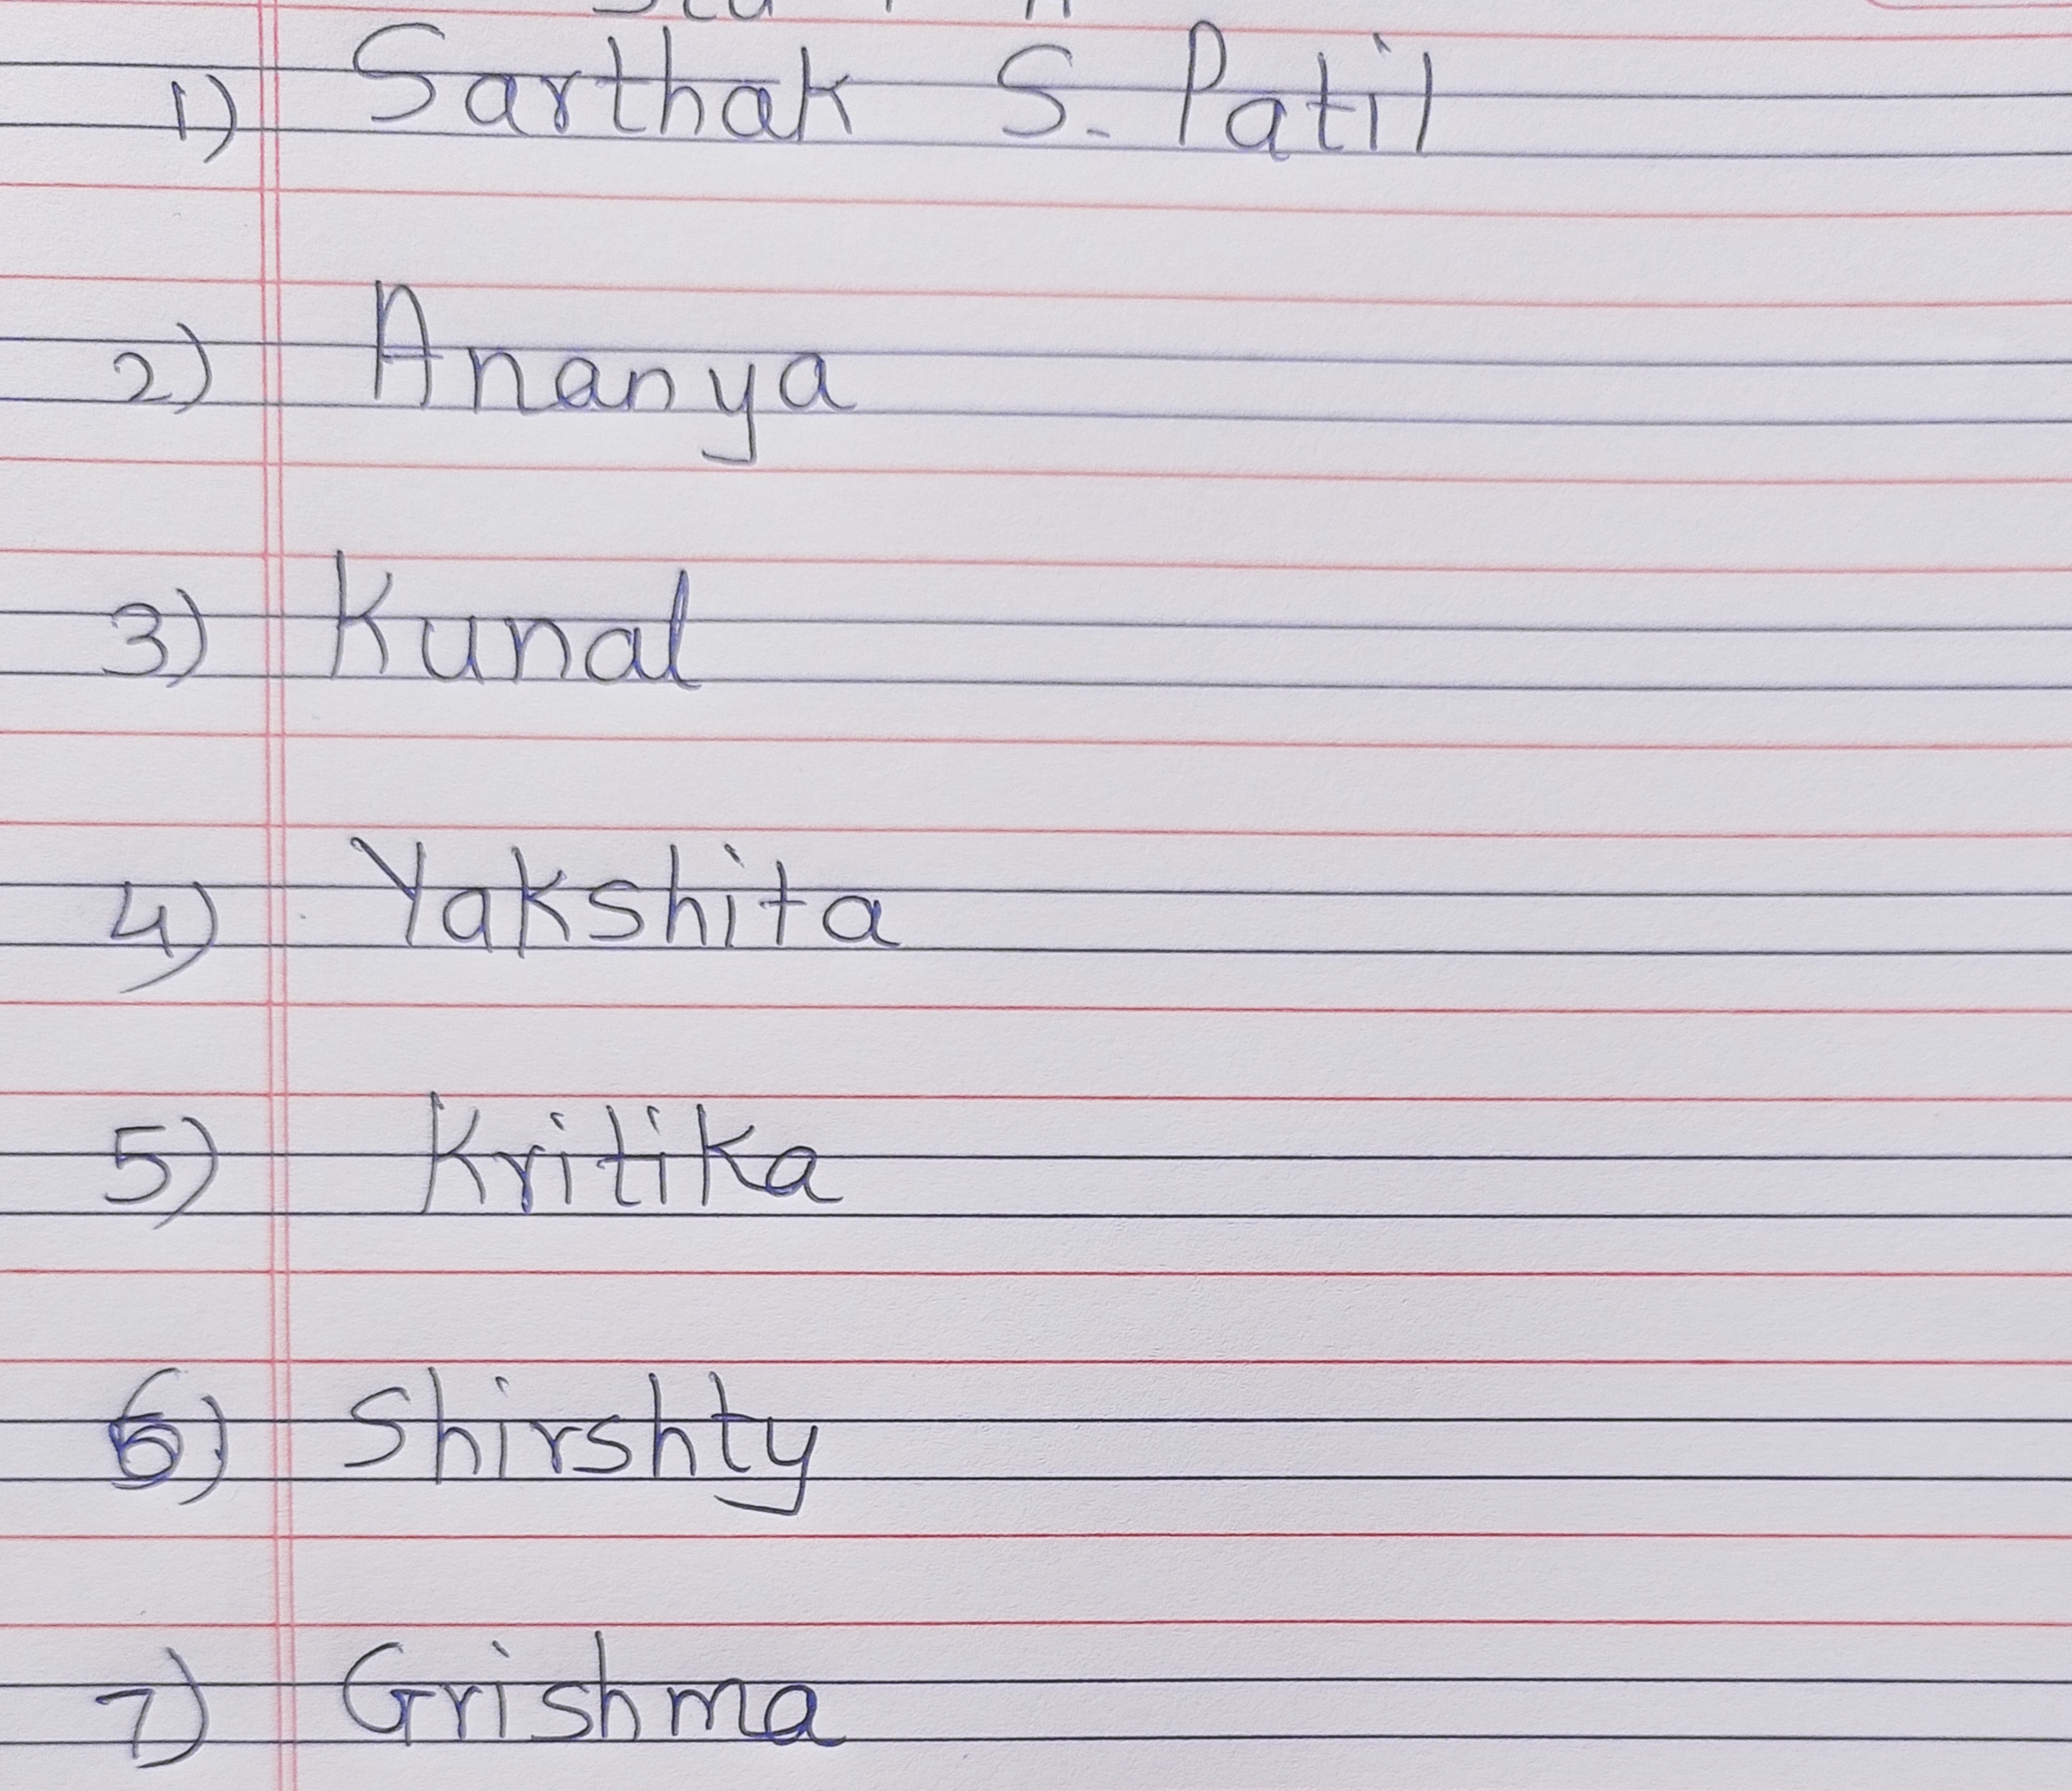 1) Sarthak S. Patil
2) Ananya
3) Kunal
4) Yakshita
5) Kritika
6) Shirshty
7) Grishma